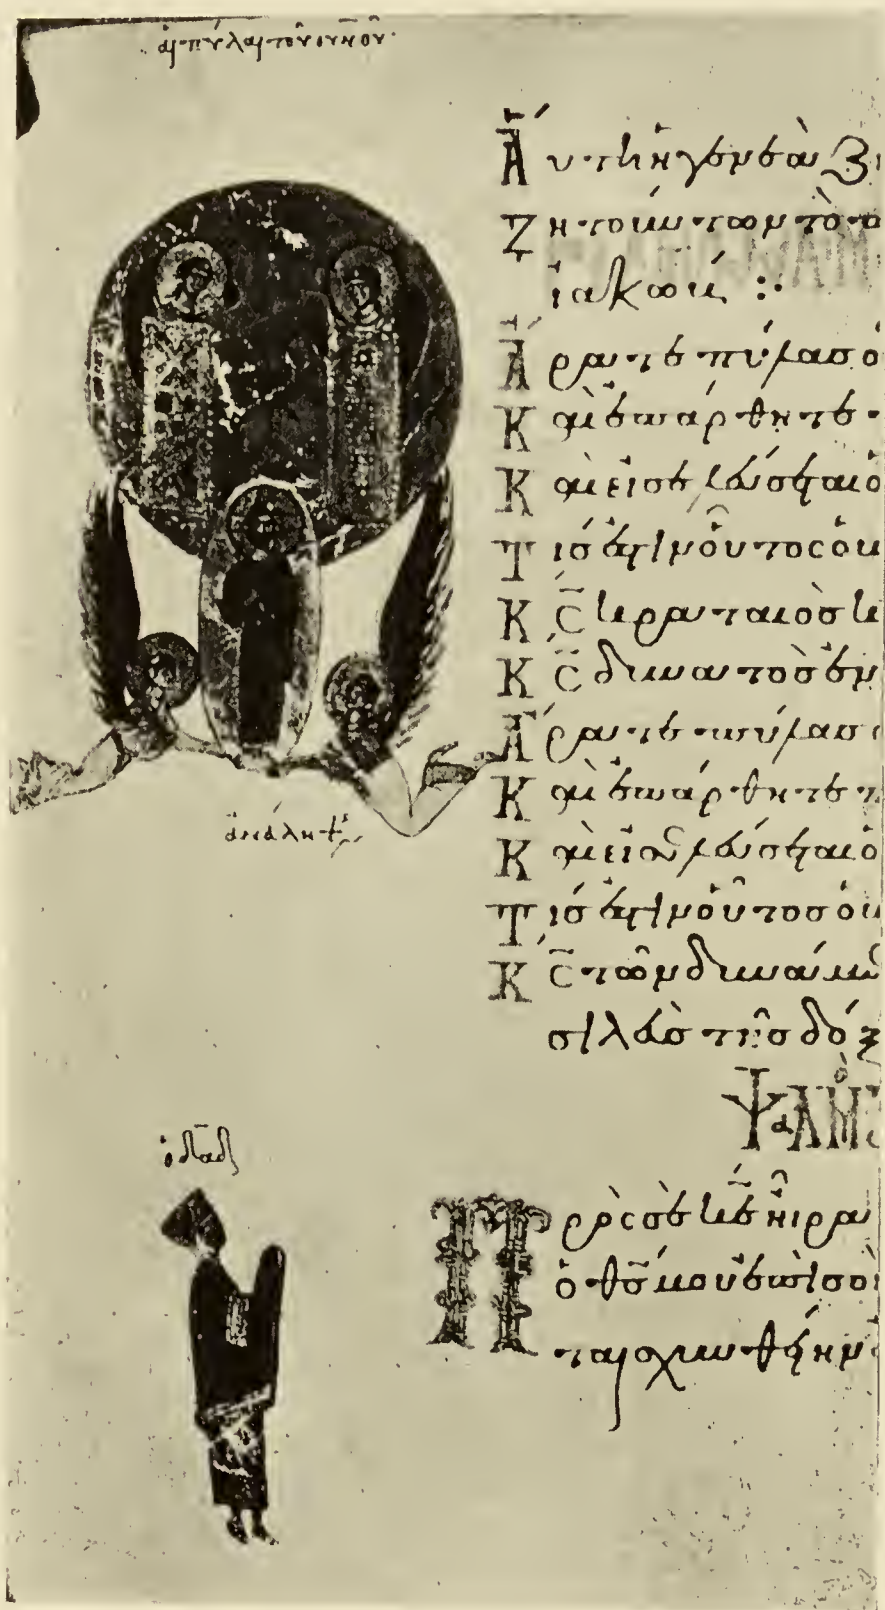 αἱ πύλαι τοῦ οὐνοῦ
Αὕτη ἡ γενεὰ ζ
Ζητούντων τὸ
ἰακώβ :·
Ἄρατε πύλας ὁ
Καὶ ἐπάρθητε
Καὶ εἰσελεύσεται ὁ
Τίς ἐστιν οὗτος ὁ β
Κ̅Σ̅ κραταιὸς κ
Κ̅Σ̅ δυνατὸς ἐν
Ἄρατε πύλας
Καὶ ἐπάρθητε π
Καὶ εἰσελεύσεται ὁ
Τίς ἐστιν οὗτος ὁ β
Κ̅Σ̅ τῶν δυνάμεω
σιλεὺς τῆς δόξ
ἀνάληψ
ΨΑΛΜΟ
ὁ δᾱδ
Πρὸς σὲ κ̅ε̅ ἦρα
ὁ θ̅ς̅ μου ἐπὶ σοὶ
καταισχυνθείην